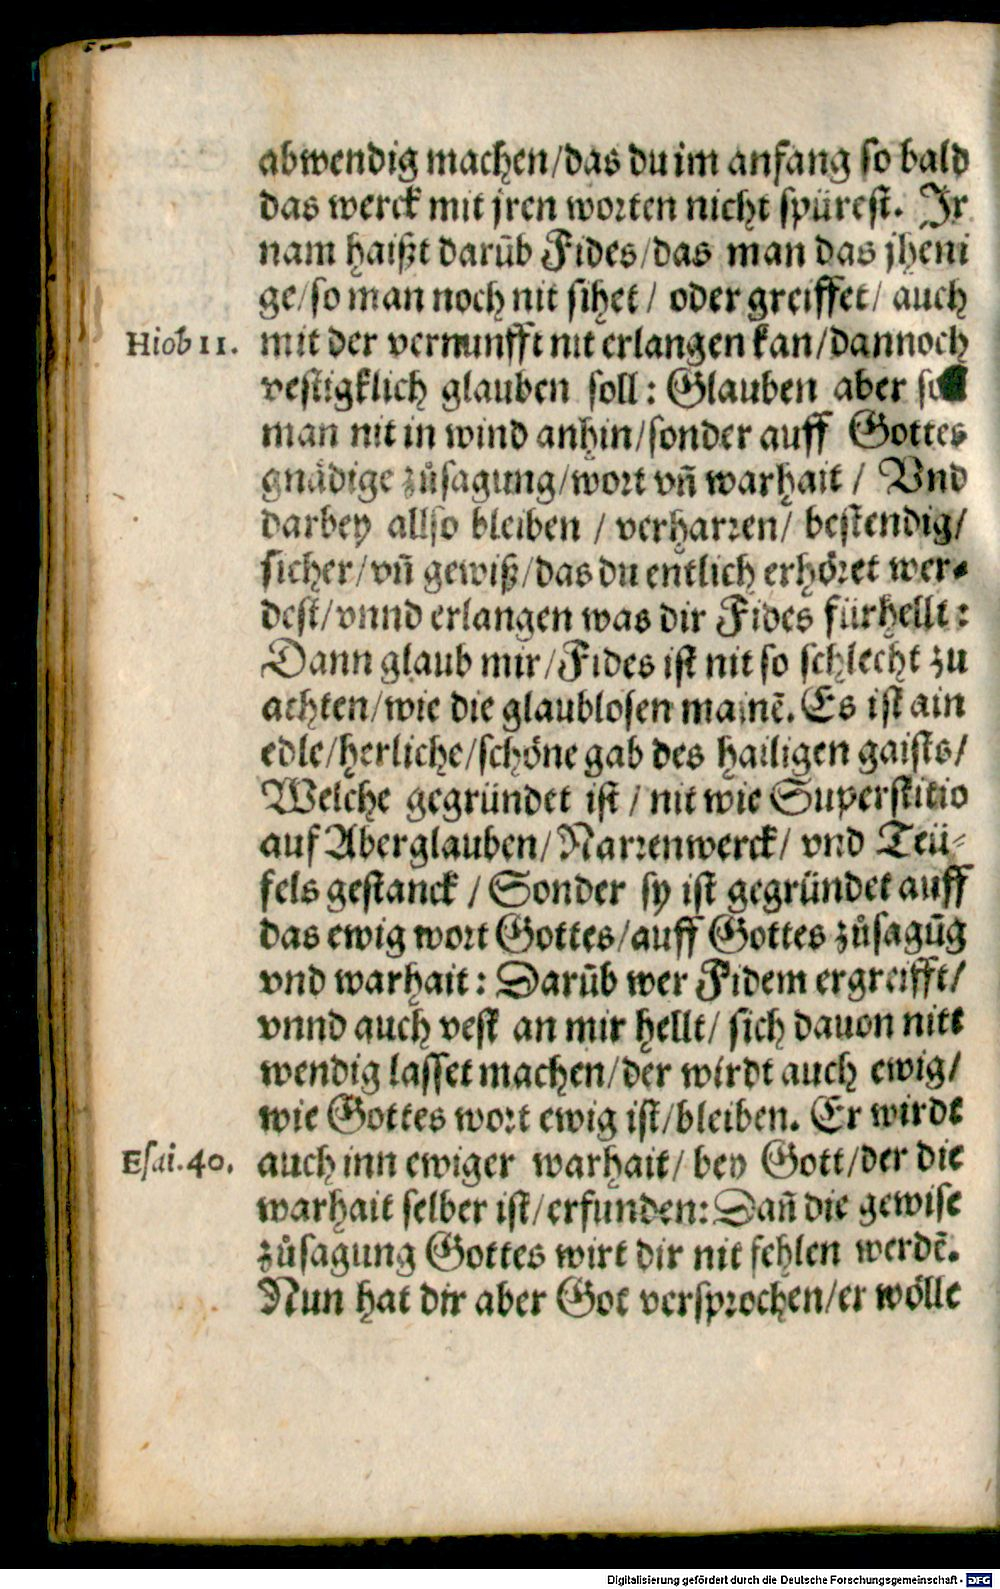 abwendig machen/das du im anfang so bald
das werck mit jren worten nicht spürest. Jr
nam haißt darūb Fides/das man das jheni
ge/so man noch nit sihet/ oder greiffet/ auch
Hiob 11. mit der vernunfft nit erlangen kan/dannoch
vestigklich glauben soll: Glauben aber
man nit in wind anhin/sonder auff Gottes
gnädige zůsagung/wort vñ warhait/ Vnd
darbey allso bleiben/ verharren/ bestendig/
sicher/vñ gewiß/das du entlich erhöret wer-
dest/vnnd erlangen was dir Fides fürhellt:
Dann glaub mir/Fides ist nit so schlecht zu
achten/wie die glaublosen mainē. Es ist ain
edle/herliche/schöne gab des hailigen gaists/
Welche gegründet ist/ nit wie Superstitio
auf Aberglauben/Narrenwerck/ vnd Teü-
fels gestanck/ Sonder sy ist gegründet auff
das ewig wort Gottes/auff Gottes zůsagūg
vnd warhait: Darūb wer Fidem ergreifft/
vnnd auch vest an mir hellt/ sich dauon nitt
wendig lasset machen/der wirdt auch ewig/
wie Gottes wort ewig ist/bleiben. Er wirdt
Esai.40. auch inn ewiger warhait/ bey Gott/der die
warhait selber ist/erfunden: Dañ die gewise
zůsagung Gottes wirt dir nit fehlen werdē.
Nun hat dir aber Got versprochen/er wölle
Digitalisierung gefördert durch die Deutsche Forschungsgemeinschaft - DFG